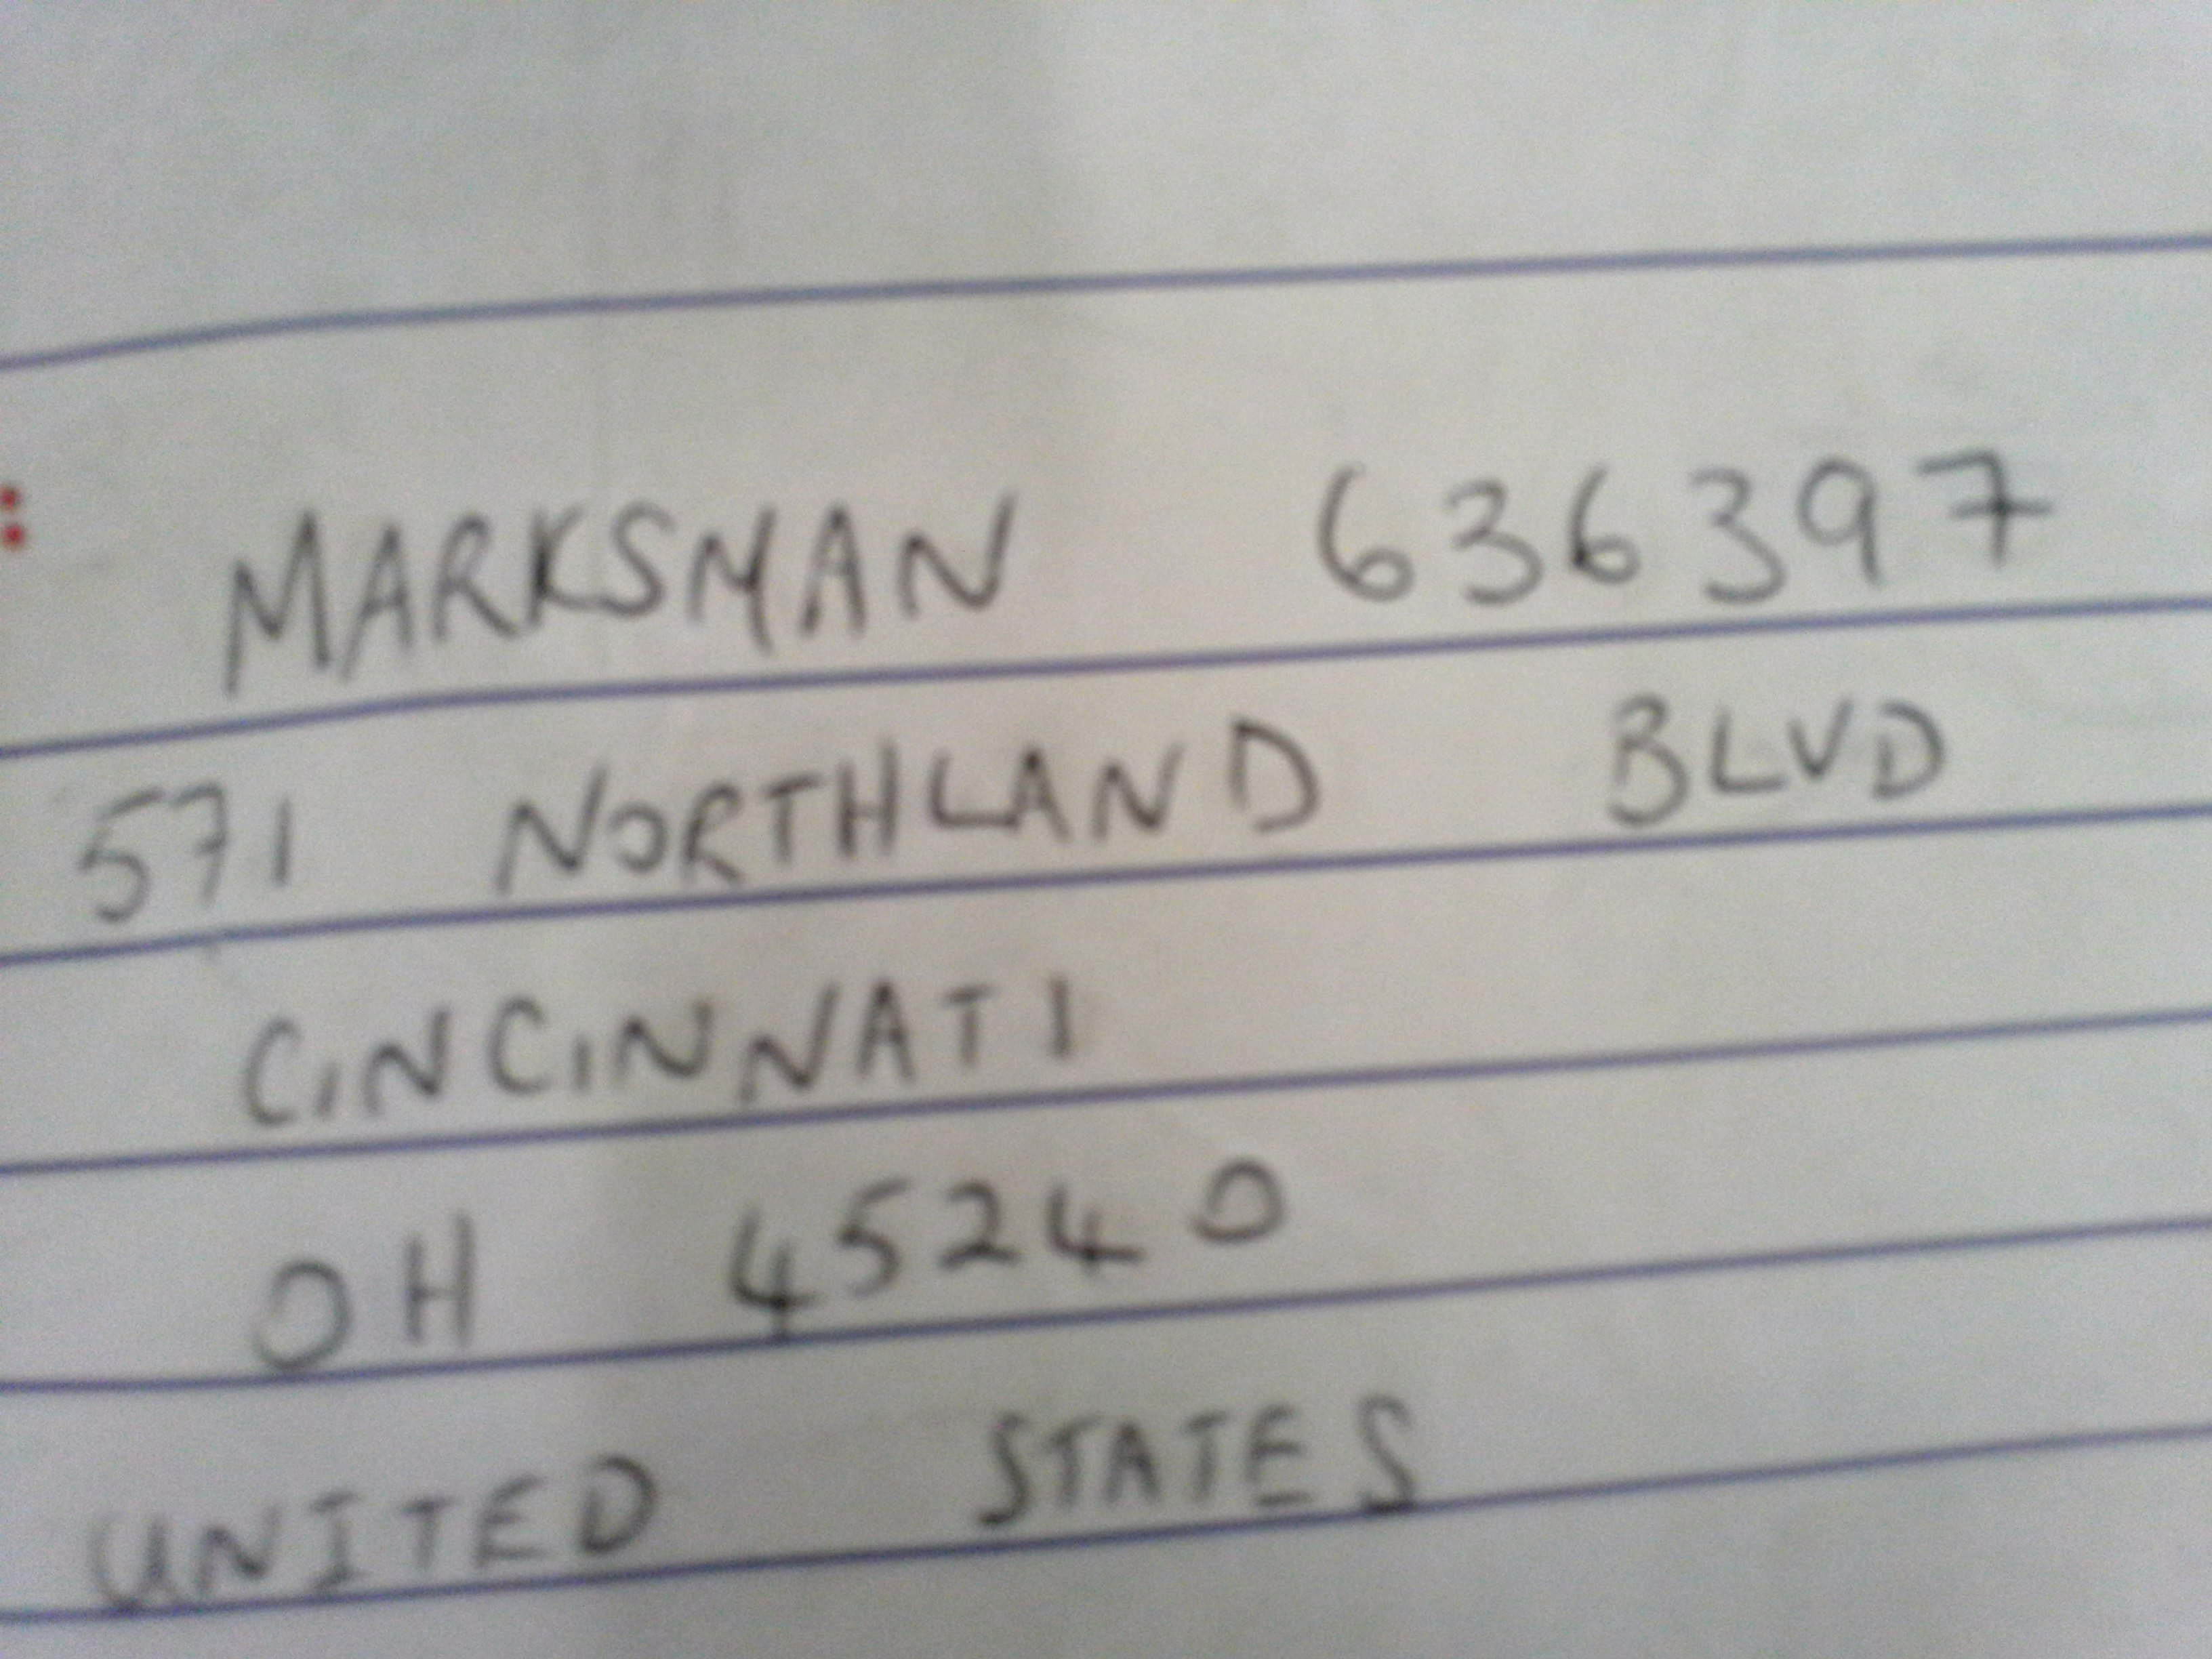 MARKSMAN 636397
571 NORTHLAND BLVD
CINCINNATI
OH 45240
UNITED STATES